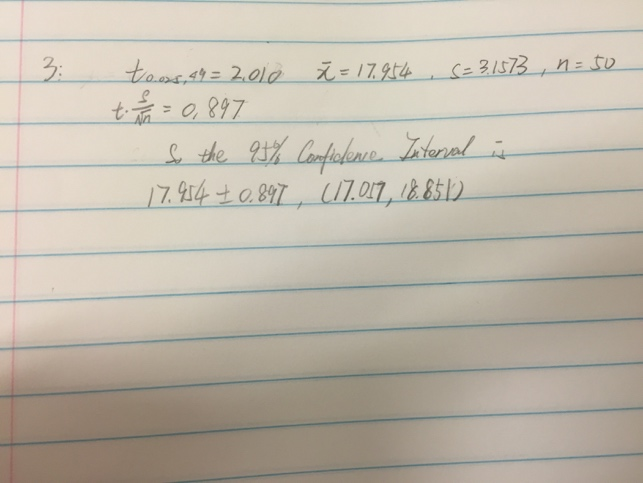 3: t₀.₀₂₅,₄₉ = 2.010 x̄ = 17.954 . s = 3.1573 , n = 50
t · s/√n = 0.897
So the 95% Confidence Interval is
17.954 ± 0.897 , (17.057, 18.851)